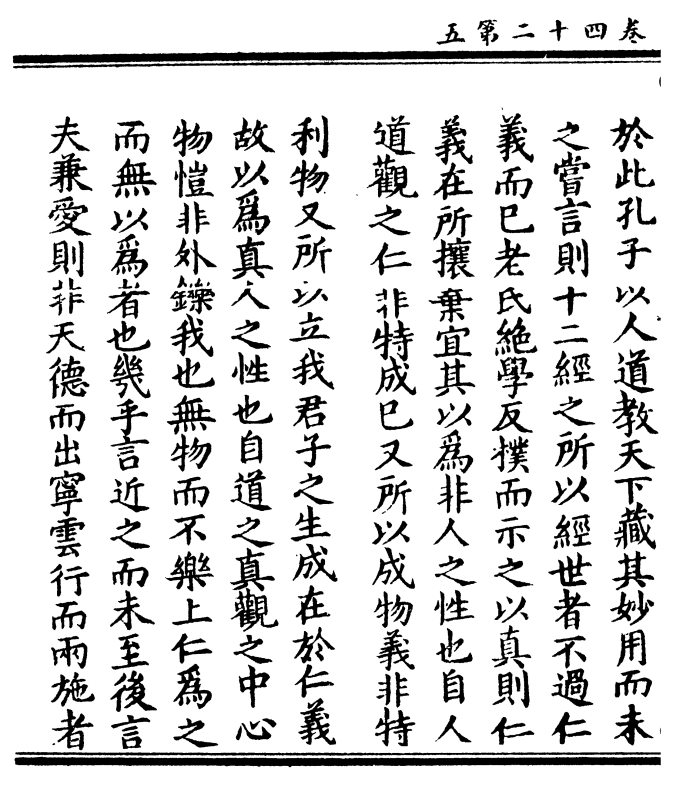 卷四十二第五
於此孔子以人道教天下藏其妙用而未
之嘗言則十二經之所以經世者不過仁
義而已老氏絕學反樸而示之以真則仁
義在所攘棄宜其以爲非人之性也自人
道觀之仁非特成已又所以成物義非特
利物又所以立我君子之生成在於仁義
故以爲真人之性也自道之真觀之中心
物愷非外鑠我也無物而不樂上仁爲之
而無以爲者也幾乎言近之而未至後言
夫兼愛則非天德而出寧雲行而雨施者